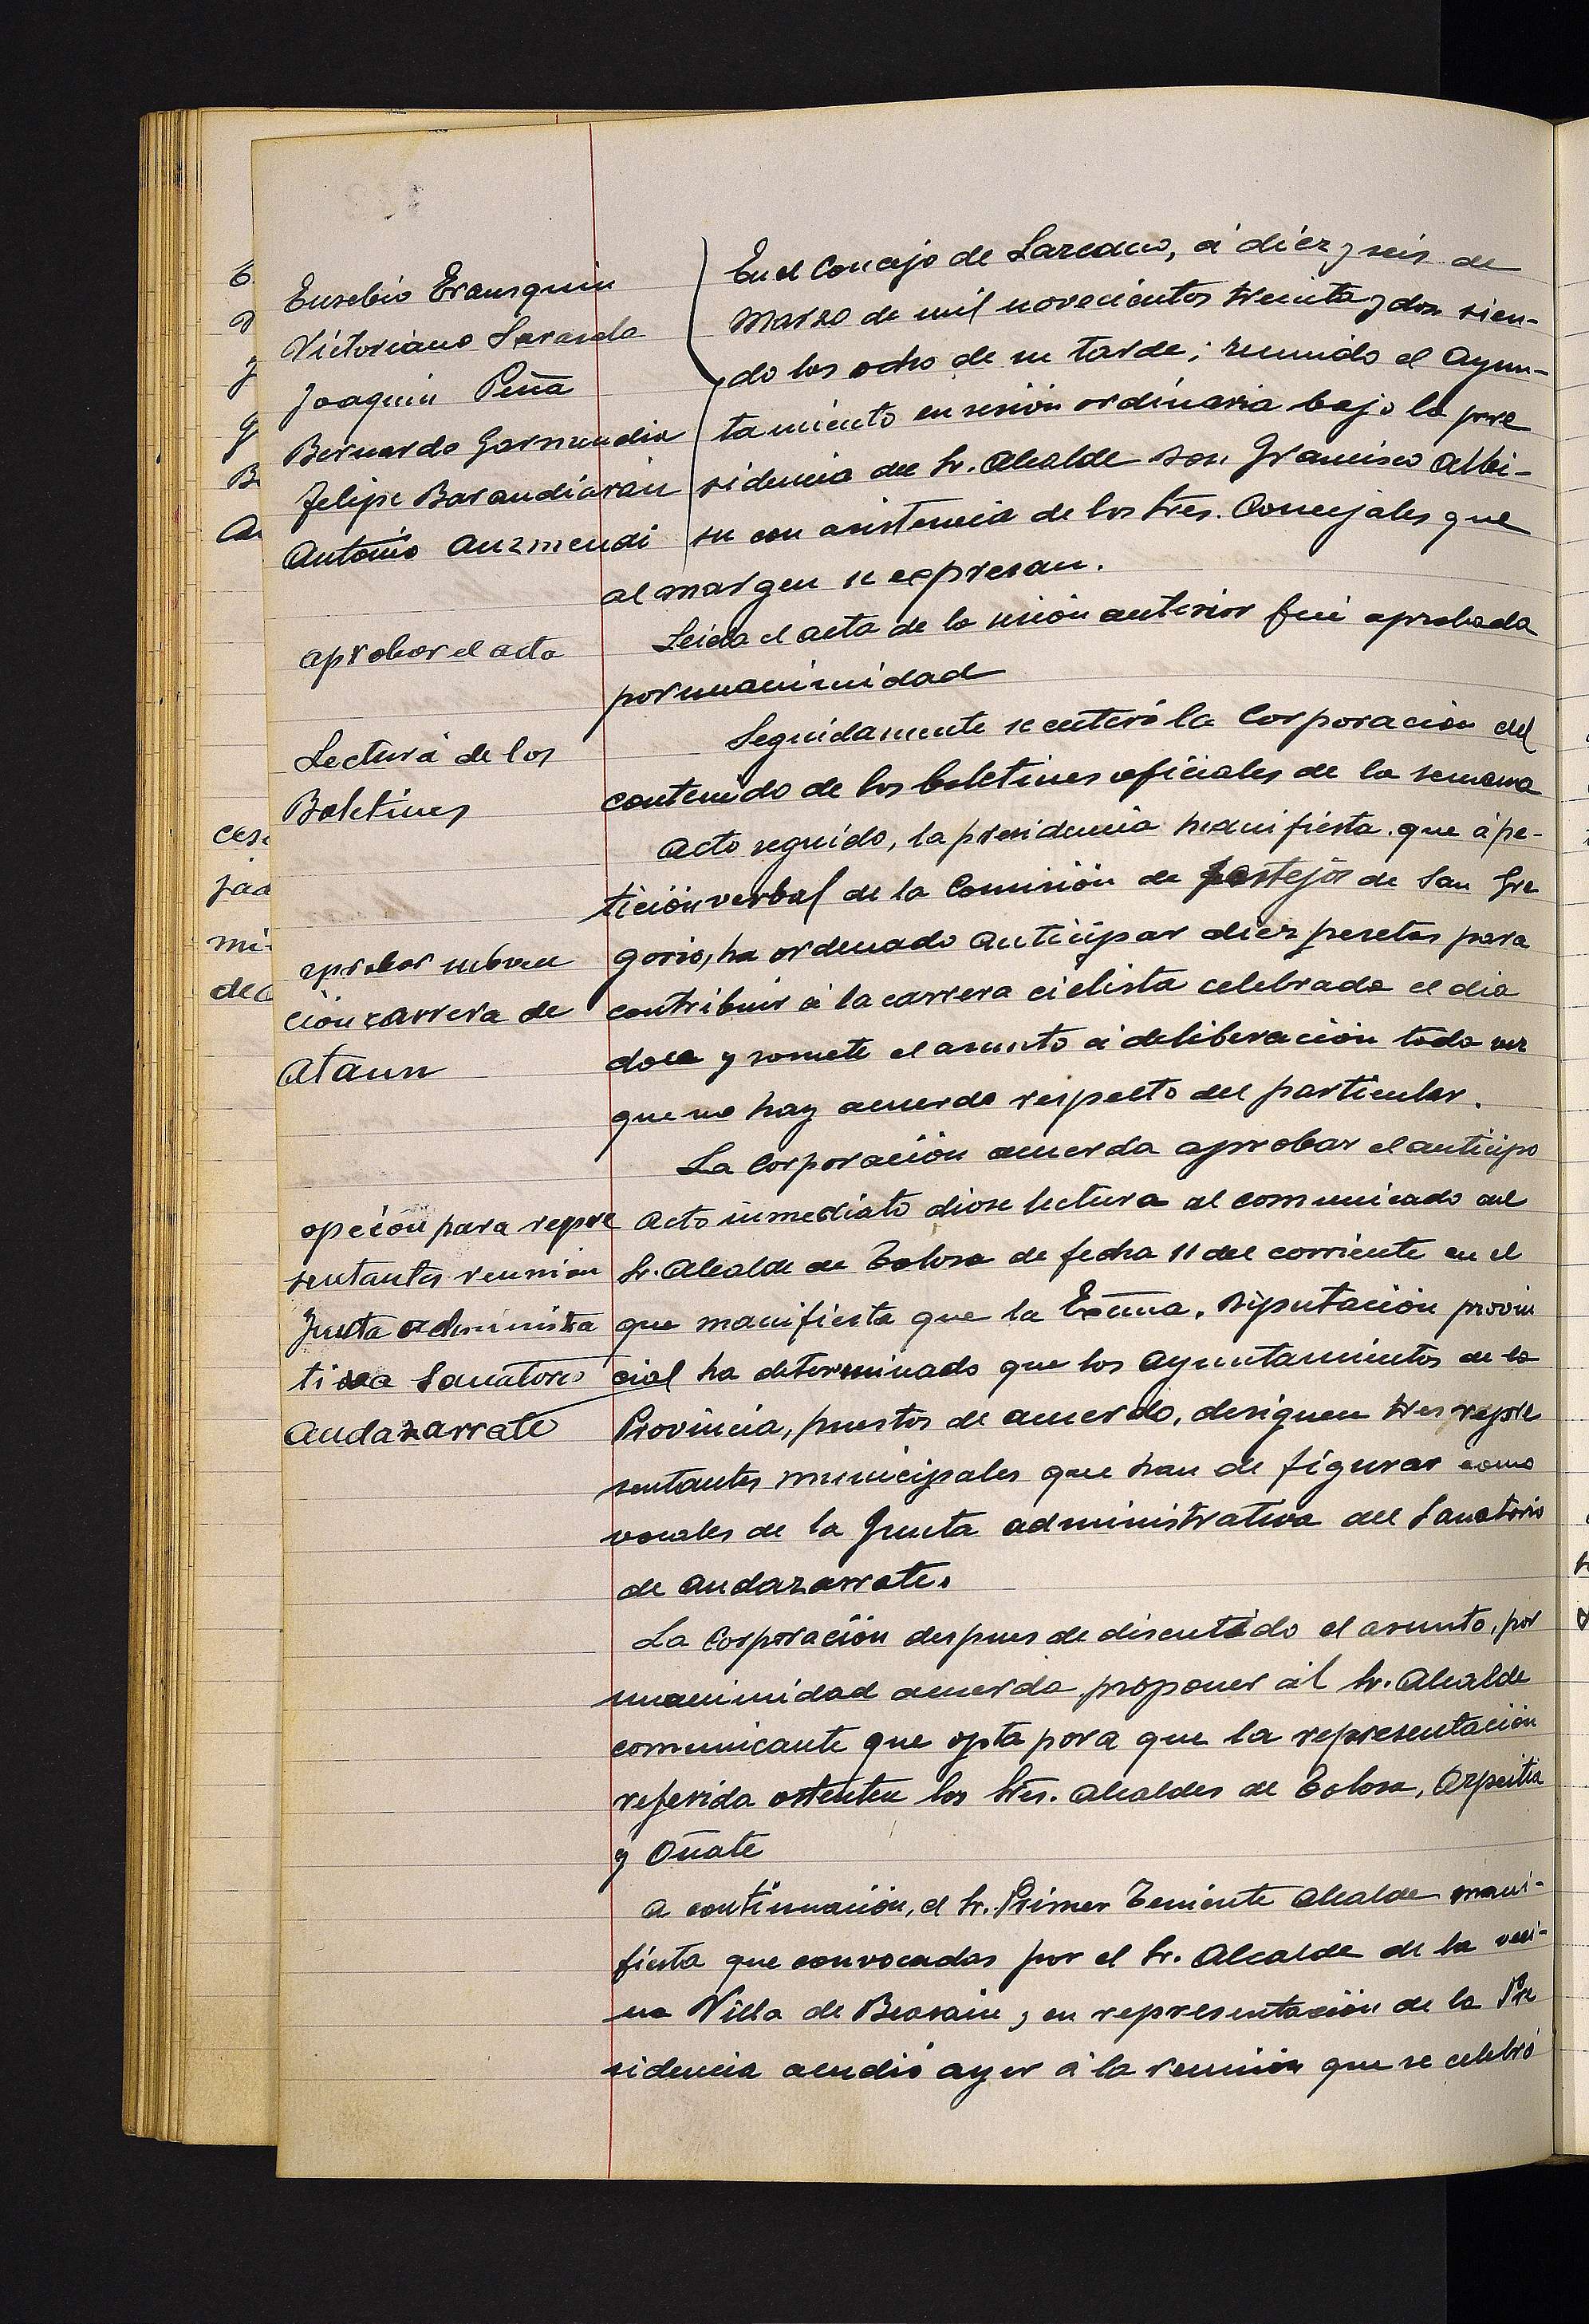 Eusebio Erausquin
Victoriano Sarasola
Joaquin Peña
Bernardo Garmendia
Felipe Barandiarán
Antonio Auzmendi
En el Concejo de Lazcano, á diez y seis de
Marzo de mil novecientos treinta y dos sien-
do las ocho de su tarde; reunido el Ayun-
tamiento en sesión ordinaria bajo la pre
sidencia del Sr. Alcalde Don Francisco Albi-
su con asistencia de los Sres. Concejales que
al margen se expresan.
aprobar el acta
Leida el acta de la sesión anterior fué aprobada
por unanimidad
Lectura de los
Boletines
Seguidamente se enteró la Corporación del
contenido de los boletines oficiales de la semana
Acto seguido, la presidencia manifiesta que á pe-
tición verbal de la Comisión de festejos de San Gre
gorio, ha ordenado anticipar diez pesetas para
contribuir á la carrera ciclista celebrada el dia
doce y somete el asunto á deliberación toda vez
que no hay acuerdo respecto del particular.
aprobar subven
ción carrera de
Ataun
La Corporación acuerda aprobar el anticipo
opción para repre
sentantes reunion
Junta administra
tiva Sanatorio
Andazarrate
Acto inmediato diose lectura al comunicado del
Sr. Alcalde de Tolosa de fecha 11 del corriente en el
que manifiesta que la Excma. Diputación provin
cial ha determinado que los Ayuntamientos de la
Provincia, puestos de acuerdo, designen tres repre
sentantes municipales que han de figurar como
vocales de la Junta administrativa del Sanatorio
de Andazarrate.
La Corporación despues de discutido el asunto, por
unanimidad acuerda proponer al Sr. Alcalde
comunicante que opta para que la representación
referida ostenten los Sres. Alcaldes de Tolosa, Azpeitia
y Oñate
A continuación, el Sr. Primer Teniente Alcalde mani-
fiesta que convocadas por el Sr. Alcalde de la veci-
na Villa de Beasain, en representación de la Pre
sidencia acudió ayer á la reunión que se celebró